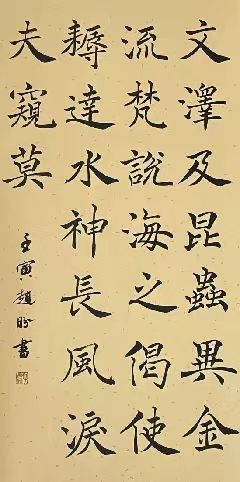 文澤及昆蟲異金
流梵說海之偈使
耨達水神長風淚
夫窺莫
壬寅趙書